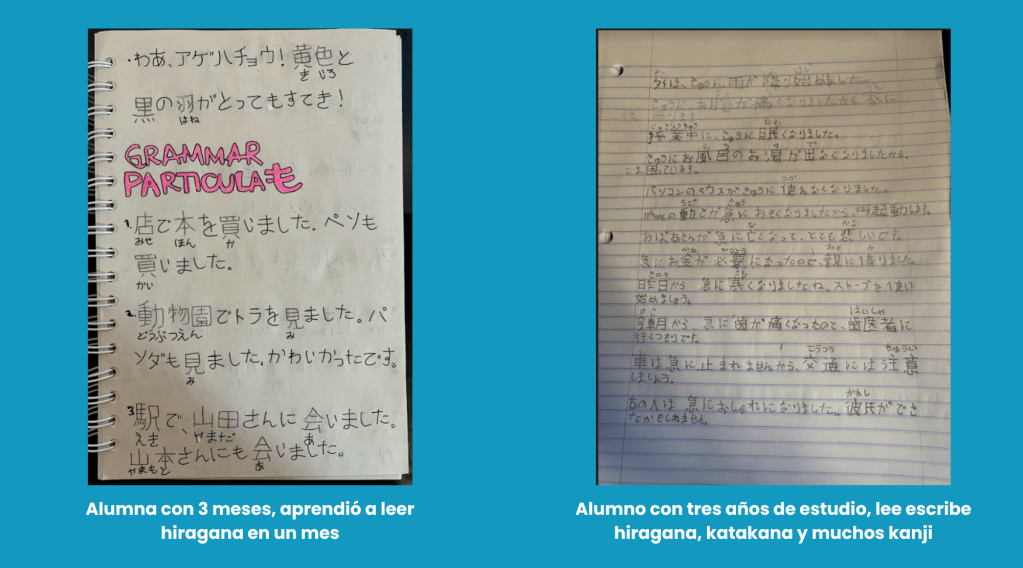 ・わあ、アゲハチョウ!黄色と
き いろ
黒の羽がとってもすてき!
はね
GRAMMAR
PARTICULA も
1. 店で本を買いました。ペンも
みせ ほん か
買いました。
かい
2. 動物園でトラを見ました。パ
どうぶつえん み
ンダも見ました。かわいかったです。
み
3 駅で、山田さんに会いました。
えき やまだ あ
山本さんにも会いました。
やまもと あ
外は、きゅうに雨が降り始めました。
きゅうにお が痛くなりましたから、
じゅぎょうちゅう
授業中に、きゅうに眠くなりました。
きゅうにお風呂のお湯が出なくなりましたから、
困っています。
つか
パソコンのマウスがきゅうに使えなくなりました。
うご きゅう
の動きが急におそくなりましたから、再起動します。
な かな
おばあさんが急に亡くなって、とても悲しいです。
かね ひつよう か
急にお金が必要になったので、親に借りました。
きのう
昨日から 急に寒くなりましたね、ストーブを使い
始めましょう。
はいしゃ
から、急に歯が痛くなったので、歯医者に
行くつもりです。
こうつう ちゅうい
車は急に止まれませんから、交通には注意
しましょう。
かれし
あの人は 急におしゃれになりました。彼氏ができ
たかもしれません。
Alumna con 3 meses, aprendió a leer
hiragana en un mes
Alumno con tres años de estudio, lee escribe
hiragana, katakana y muchos kanji